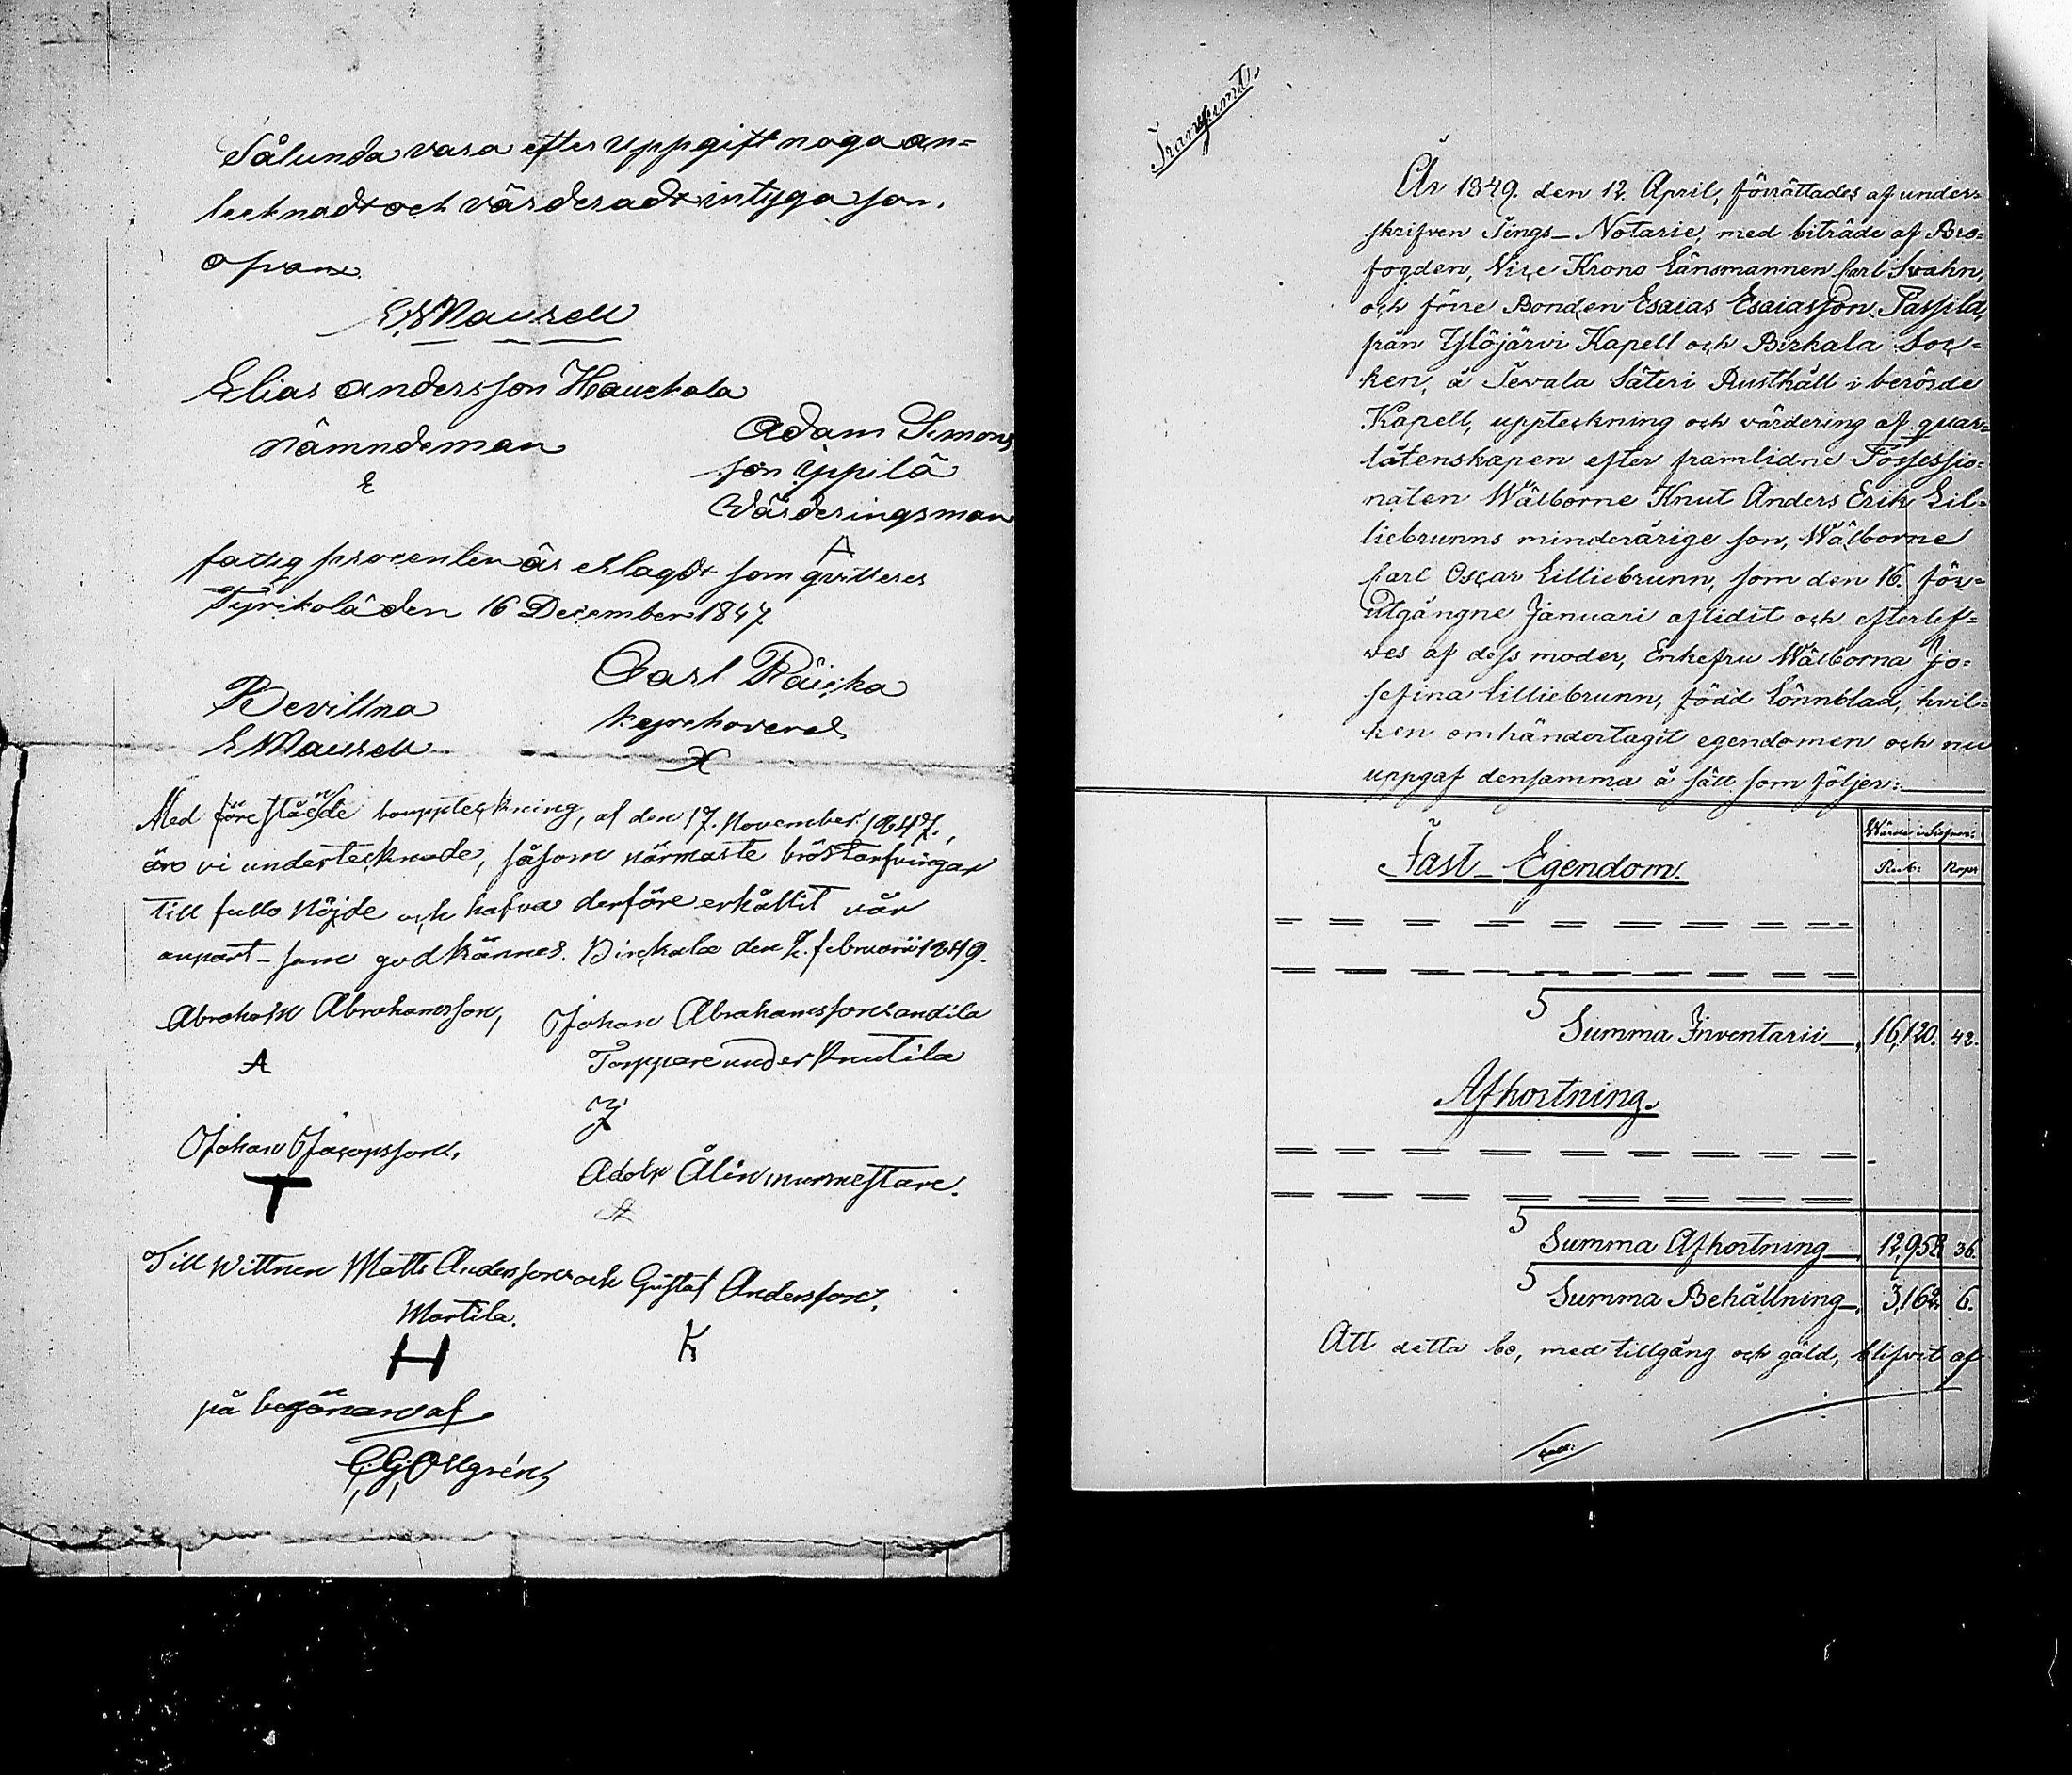 Sålunda vara efter uppgift noga an=
tecknadt och värderadt intyga som
ofvan.
Elias Andersson Hauckala
Nämndeman
E
Adam Simons
son Yppilä
Värderingsman
A
fattig procenten är erlagdt som qvitteres
Tyrikola den 16 December 1847
Carl Räicka
kyrckoverd
X
Bevittna
E Mausell
Med förestående bouppteckning, af den 17. November 1847,
äro vi undertecknade, såsom närmaste bröstarfvingar
till fullo nöjde och hafva derföre erhållit vår
anpart som godkännes. Birckala den 2. februarii 1849.
Abraham Abrahamsson,
A
Johan Abrahamsson Landila
Torppare under Knutila
J
Johan Jacopsson.
T
Adolf Ålin murmestare.
A
Till Wittnen Matts Andersson och Gustaf Andersson,
Mortila.
H
K
på begäran af
Transsumt.
År 1849. den 12. April, förrättades af under=
skrifven Tings-Notarie, med biträde af Bro=
fogden, Vice Krono Länsmannen Carl Svahn,
och förre Bonden Esaias Esaiasson Passila,
från Ylöjärvi Kapell och Birkala Soc=
ken, å Tevala Säteri Rusthåll i berörde
Kapell, uppteckning och värdering af quar=
låtenskapen efter framlidne Possessio=
naten Wälborne Knut Anders Erik Lil=
liebrunns minderårige son, Wälborne
Carl Oscar Lilliebrunn, som den 16. för=
utgångne Januari aflidit och efterlef=
ves af dess moder, Enkefru Wälborna Jo=
sefina Lilliebrunn, född Lönnblad, hvil=
ken omhändertagit egendomen och nu
uppgaf densamma å sätt som följer:
Wärde i Silfver:
Rub: Kop:
Fast Egendom.
Summa Inventarii 16,120. 42.
Afkortning.
Summa Afkortning 12,958 36.
Summa Behållning 3,162 6.
Att detta bo, med tillgång och gäld, blifvit af